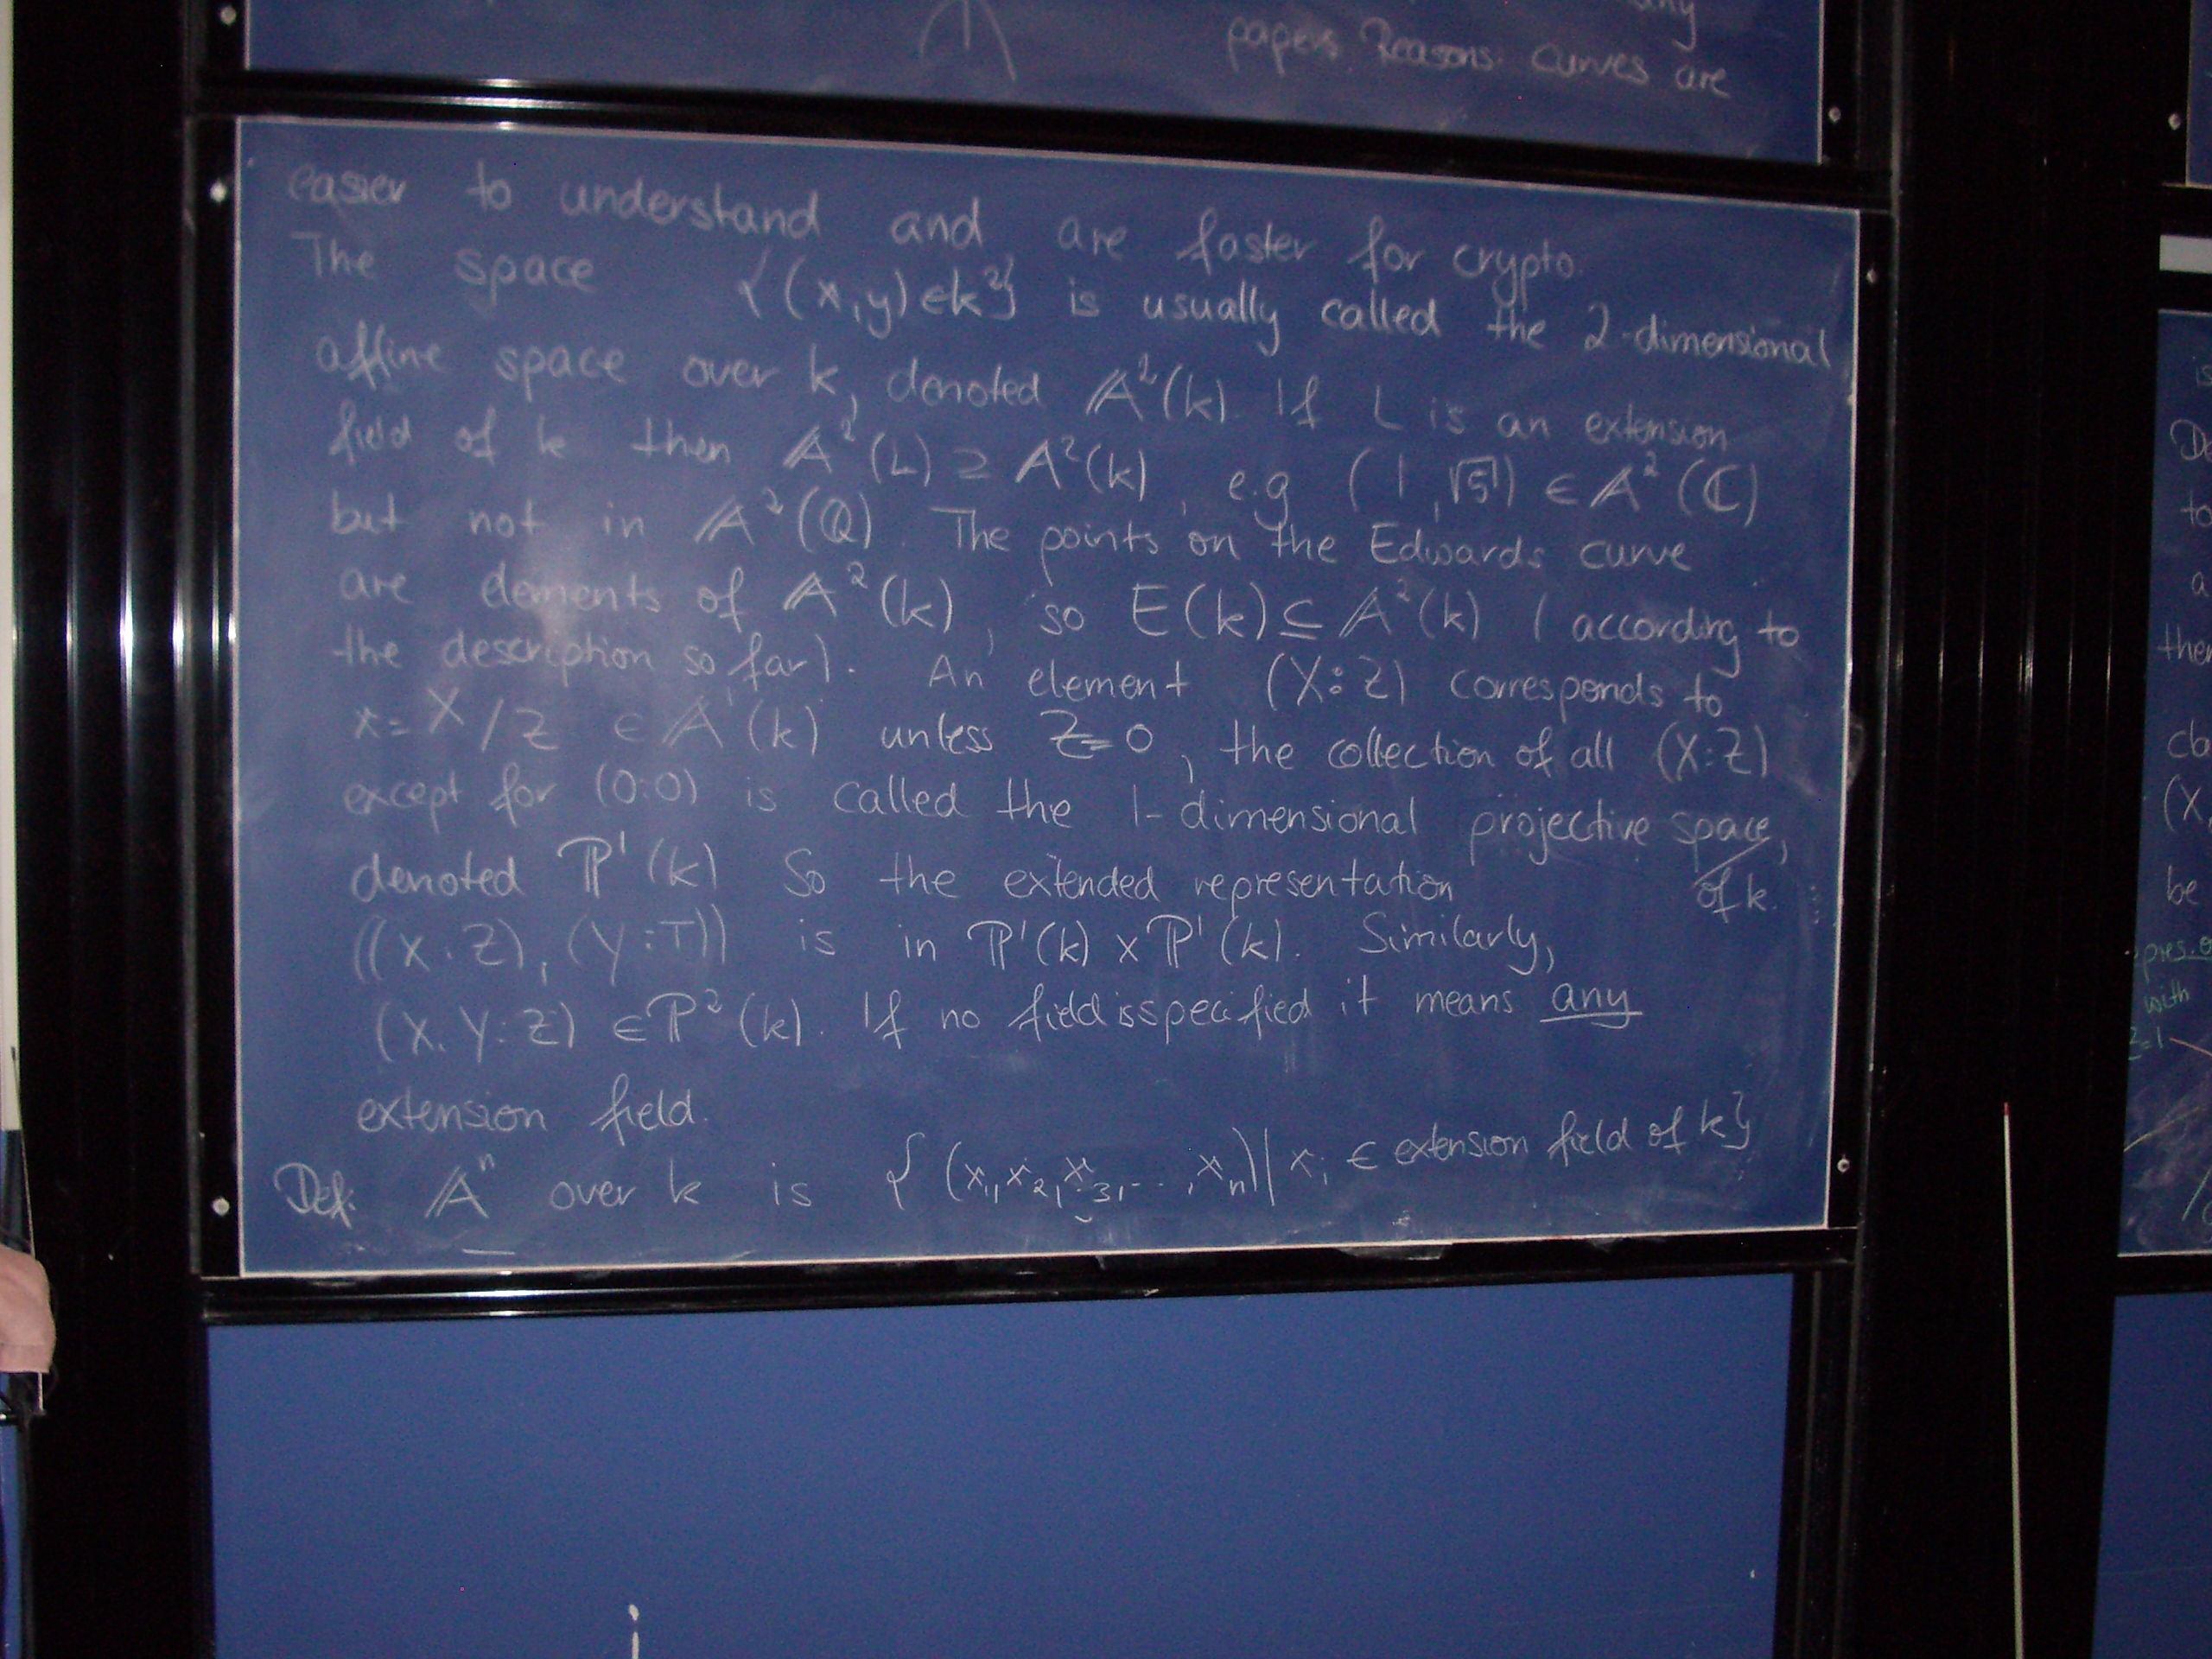 any
papers. Reasons: curves are
easier to understand and are faster for crypto.
The space {(x,y) ∈ k²} is usually called the 2-dimensional
affine space over k, denoted 𝔸²(k). If L is an extension
field of k then 𝔸²(L) ⊇ 𝔸²(k), e.g (1,√5) ∈ 𝔸²(ℂ)
but not in 𝔸²(ℚ). The points on the Edwards curve
are elements of 𝔸²(k), so E(k) ⊆ 𝔸²(k) (according to
the description so far). An element (X:Z) corresponds to
x = X/Z ∈ 𝔸¹(k) unless Z=0, the collection of all (X:Z)
except for (0:0) is called the 1-dimensional projective space,
of k.
denoted ℙ¹(k) So the extended representation
((X:Z),(Y:T)) is in ℙ¹(k) x ℙ¹(k). Similarly,
(X:Y:Z) ∈ ℙ²(k). If no field is specified it means any
extension field.
Def: 𝔸ⁿ over k is {(x₁,x₂,x₃,...,xₙ)| xᵢ ∈ extension field of k}
is
to
a
cb
(X,
be
with
Z=1